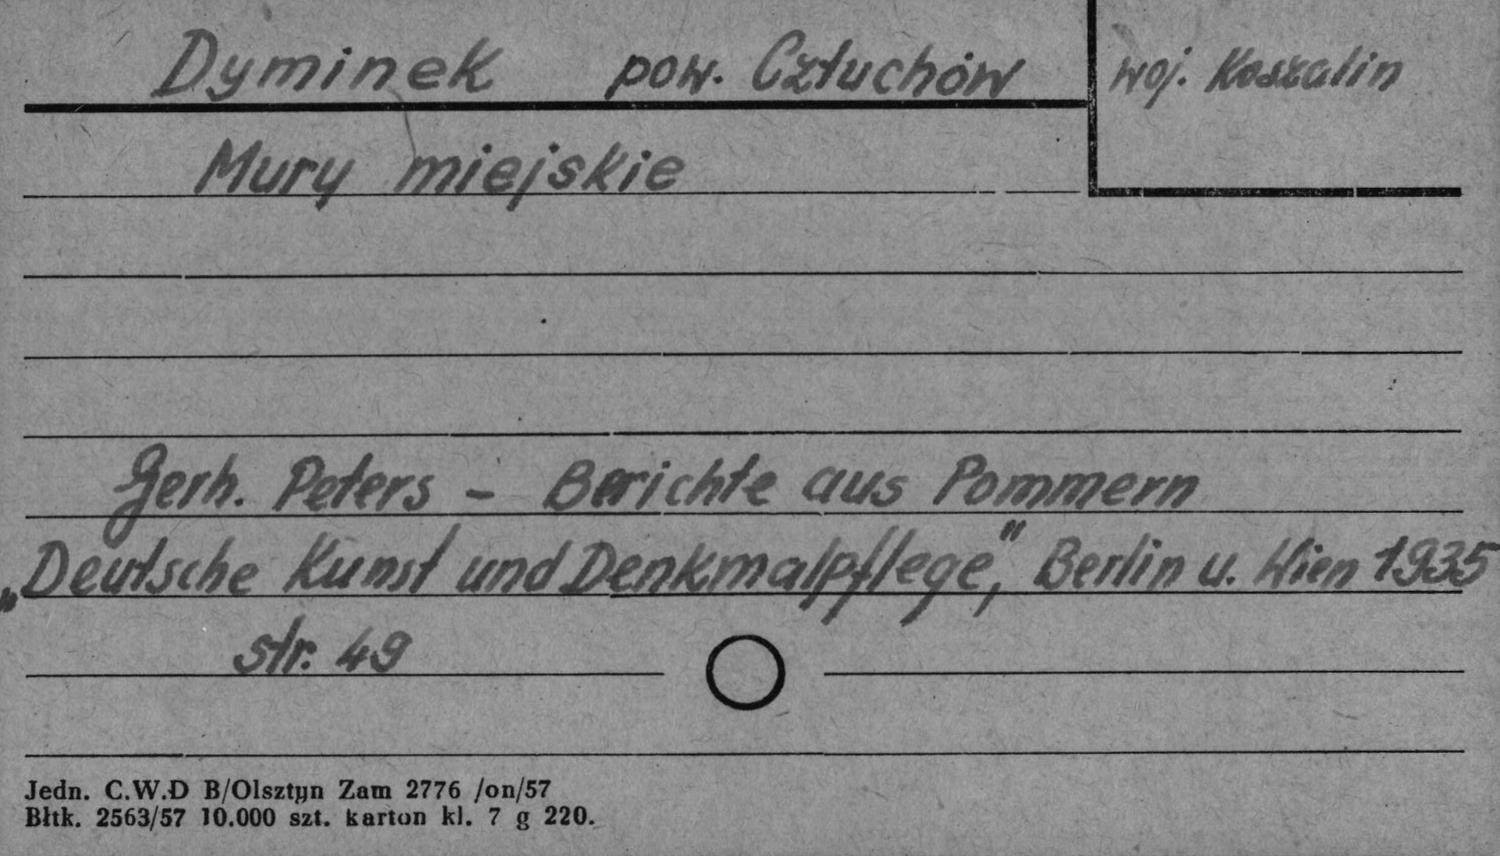 Dyminek pow. Człuchów
woj. Koszalin
Mury miejskie
Gerh. Peters - Berichte aus Pommern
„Deutsche Kunst und Denkmalpflege", Berlin u. Wien 1935
str. 49
Jedn. C.W.D B/Olsztyn Zam 2776 /on/57
Błtk. 2563/57 10.000 szt. karton kl. 7 g 220.